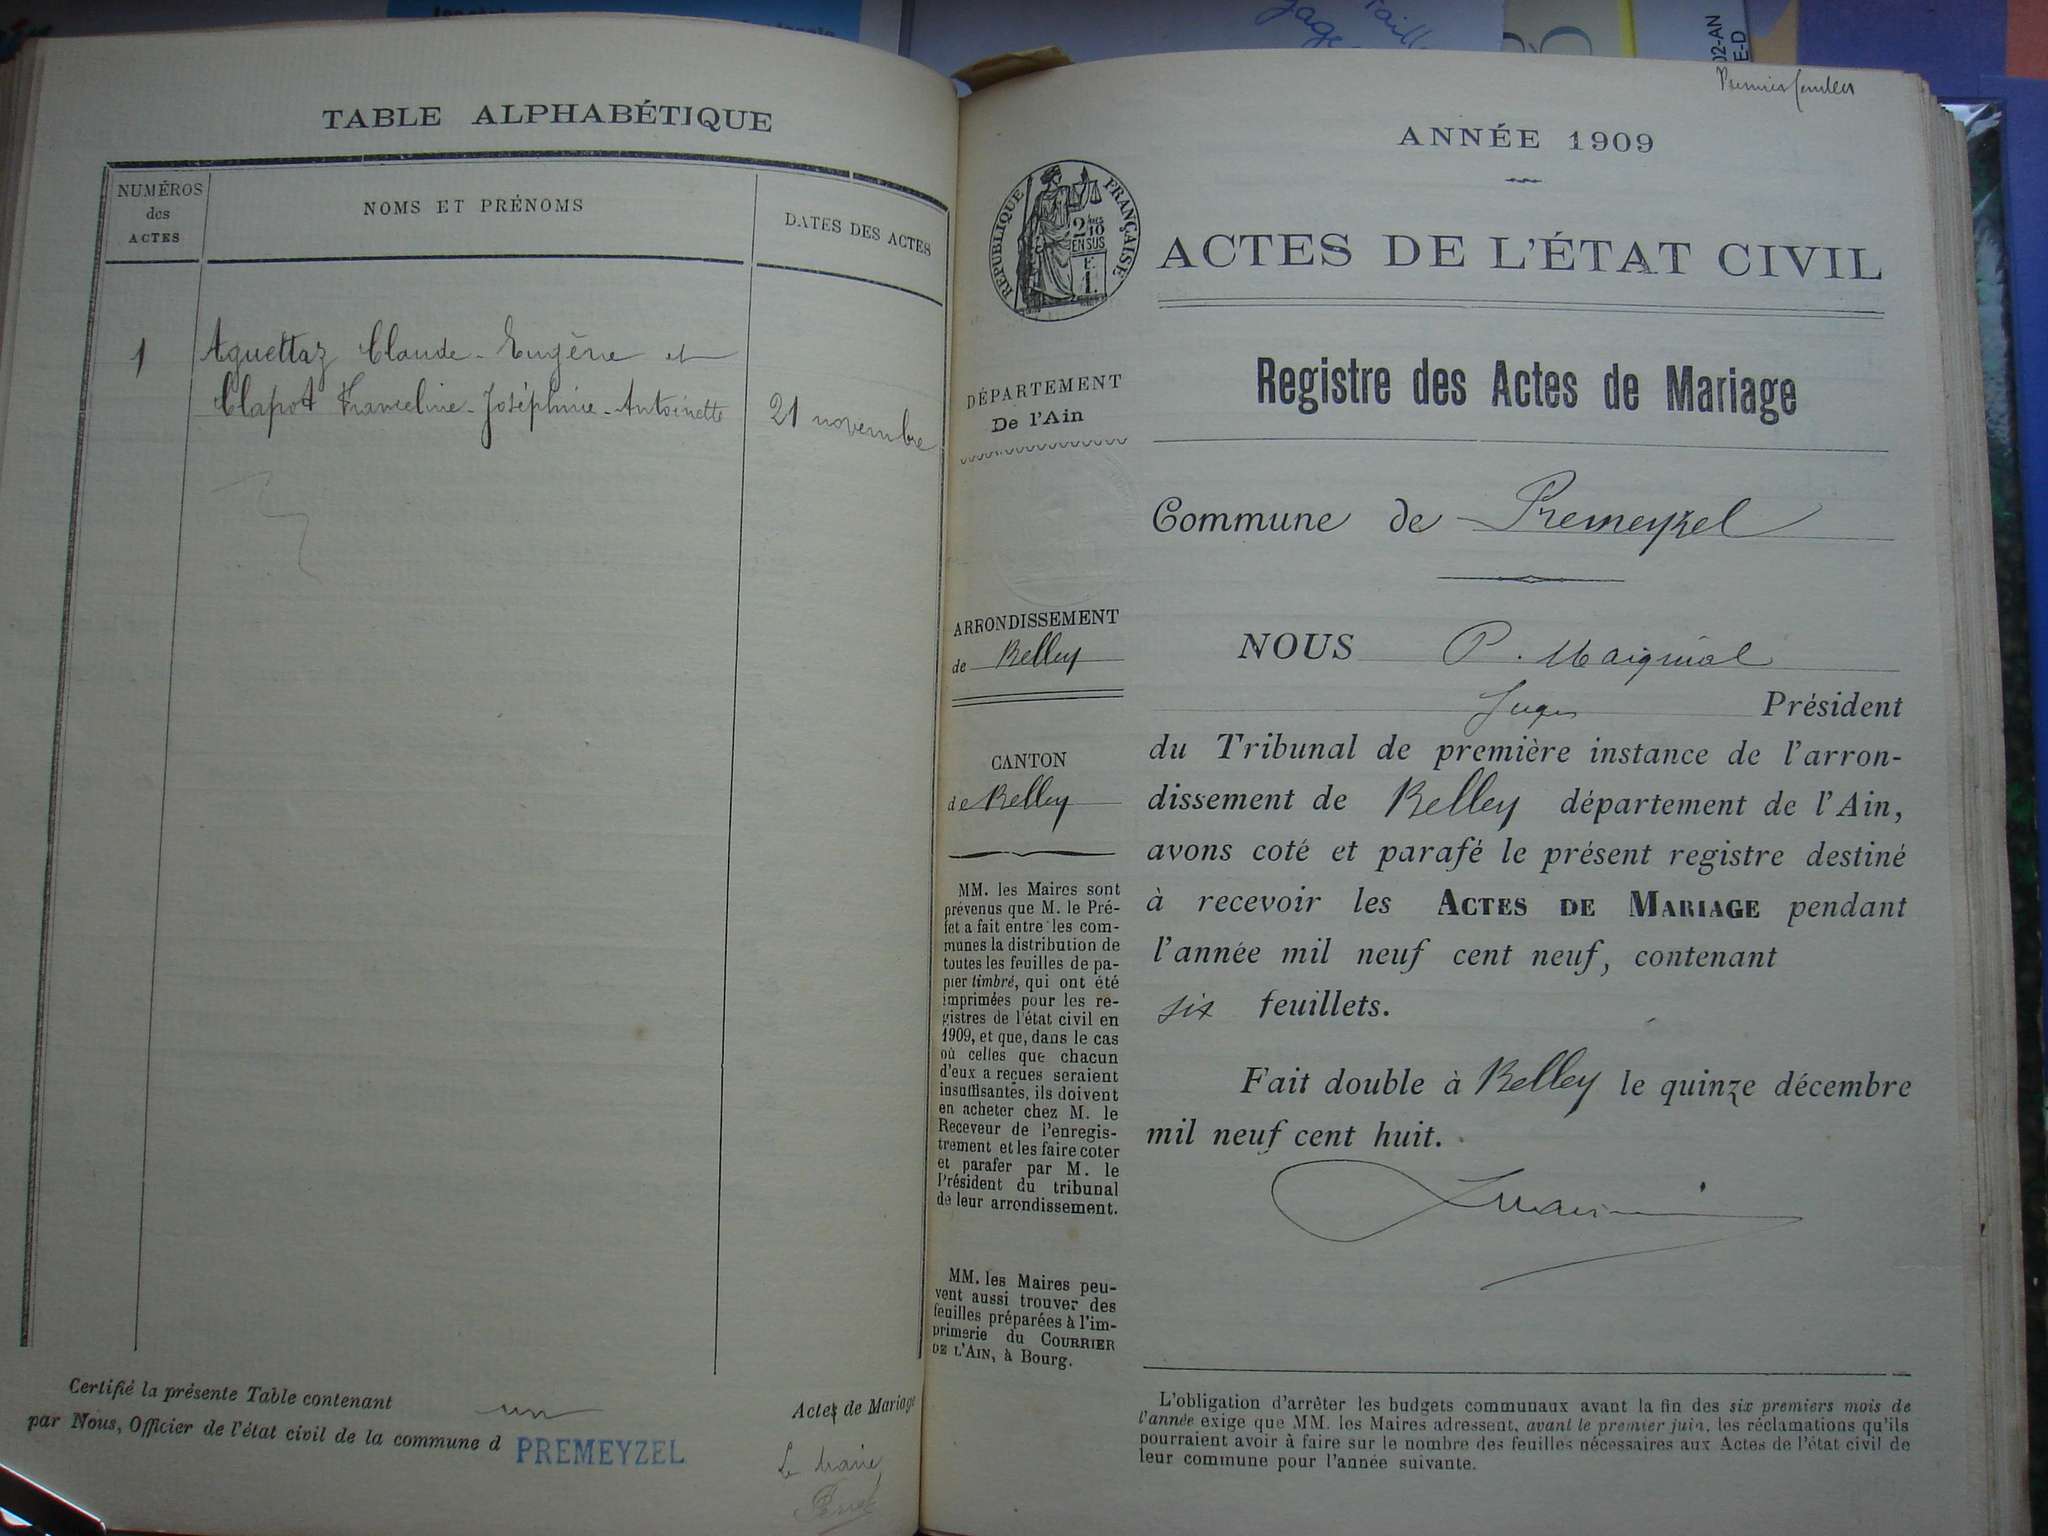 TABLE ALPHABÉTIQUE
NUMÉROS
des
ACTES
NOMS ET PRÉNOMS
DATES DES ACTES
1
Aquettaz Claude-Eugène et
Clapot Franceline-Joséphine-Antoinette
21 novembre
Certifié la présente Table contenant un Actes de Mariage
par Nous, Officier de l'état civil de la commune d PREMEYZEL
Le Maire
Premier feuillet
ANNÉE 1909
RÉPUBLIQUE FRANÇAISE
2 10
EN SUS
ACTES DE L'ÉTAT CIVIL
DÉPARTEMENT
De l'Ain
Registre des Actes de Mariage
Commune de Premeyzel
ARRONDISSEMENT
de Belley
CANTON
de Belley
MM. les Maires sont
prévenus que M. le Pré-
fet a fait entre les com-
munes la distribution de
toutes les feuilles de pa-
pier timbré, qui ont été
imprimées pour les re-
gistres de l'état civil en
1909, et que, dans le cas
où celles que chacun
d'eux a reçues seraient
insuffisantes, ils doivent
en acheter chez M. le
Receveur de l'enregis-
trement et les faire coter
et parafer par M. le
Président du tribunal
de leur arrondissement.
MM. les Maires peu-
vent aussi trouver des
feuilles préparées à l'im-
primerie du COURRIER
DE L'AIN, à Bourg.
NOUS P. Maignial
Juge Président
du Tribunal de première instance de l'arron-
dissement de Belley département de l'Ain,
avons coté et parafé le présent registre destiné
à recevoir les ACTES DE MARIAGE pendant
l'année mil neuf cent neuf, contenant
six feuillets.
Fait double à Belley le quinze décembre
mil neuf cent huit.
L'obligation d'arrêter les budgets communaux avant la fin des six premiers mois de
l'année exige que MM. les Maires adressent, avant le premier juin, les réclamations qu'ils
pourraient avoir à faire sur le nombre des feuilles nécessaires aux Actes de l'état civil de
leur commune pour l'année suivante.